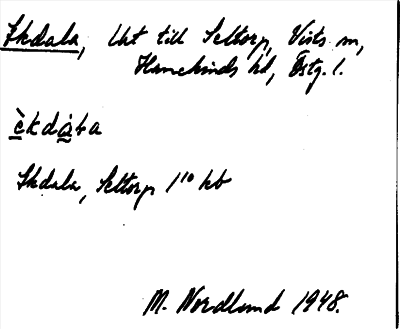 Ekdala, Uht till Settorp, Vists sn,
Hanekinds hd, Östg. l.
èkdàla
Ekdala, Settorp 1¹⁰ kb
M. Nordlund 1948.